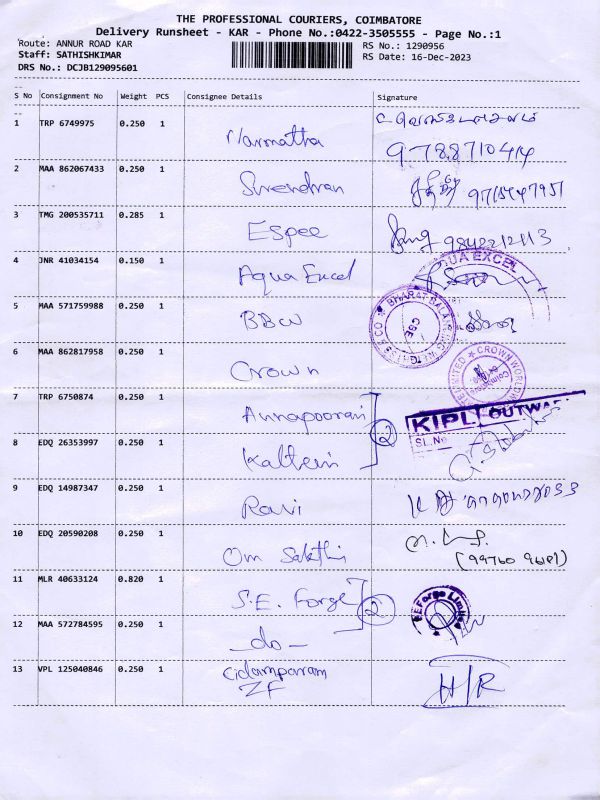 THE PROFESSIONAL COURIERS, COIMBATORE
Delivery Runsheet - KAR - Phone No.:0422-3505555 - Page No.:1
Route: ANNUR ROAD KAR RS No.: 1290956
Staff: SATHISHKIMAR RS Date: 16-Dec-2023
DRS No.: DCJB129095601
S No Consignment No Weight PCS Consignee Details Signature
1 TRP 6749975 0.250 1
9788710414
2 MAA 862067433 0.250 1 Surendran
3 TMG 200535711 0.285 1 Espee 9842212113
4 JNR 41034154 0.150 1 Aqua Excel
AQUA EXCEL
5 MAA 571759988 0.250 1 BBW
BHARAT BALANCING
CBE
6 MAA 862817958 0.250 1 Crown
CROWN WORLDWIDE
LIMITED
7 TRP 6750874 0.250 1 Annapoorani
2
KIPL OUTWARD
SL.No
8 EDQ 26353997 0.250 1
9 EDQ 14987347 0.250 1 Ravi
10 EDQ 20590208 0.250 1 Om Sakthi
11 MLR 40633124 0.820 1 S.E. Forge
2
SEForge Limited
12 MAA 572784595 0.250 1 -do-
13 VPL 125040846 0.250 1 Cidamparam
ZF
H/R